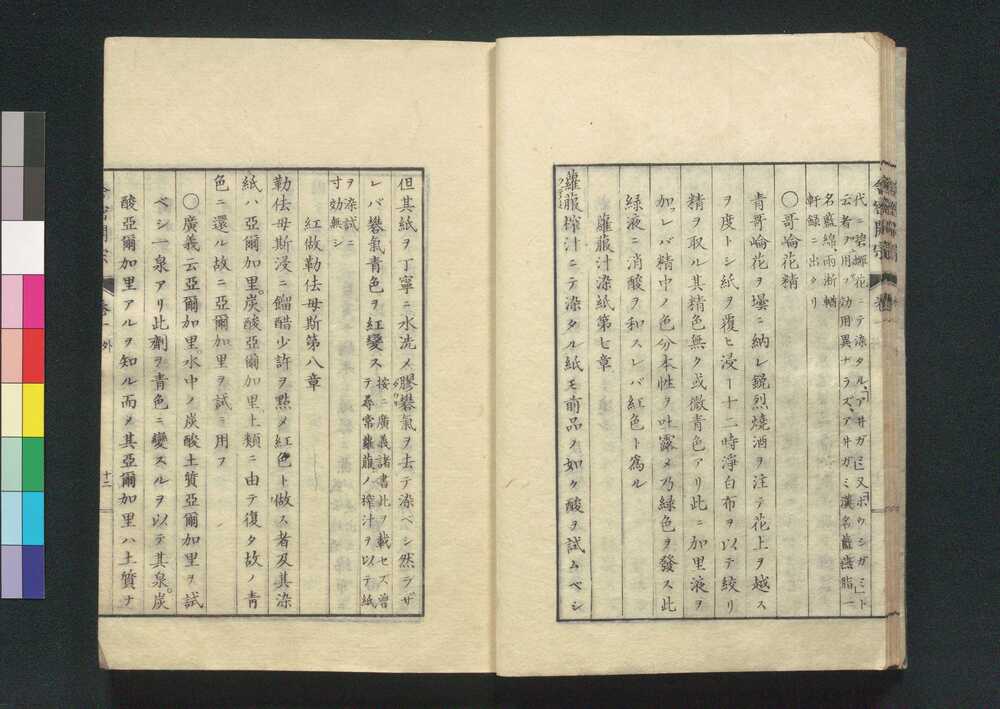 代ニ碧蟬花ニテ染タル、「アヰガミ」又「ボウシガミ」ト
云者ヲ用フ効用異ナラズ、アヰガミ漢名藍臙脂一
名藍綿、雨淅輶
軒録ニ出タリ
〇哥崘花精
青哥崘花ヲ壜ニ納レ鋭烈燒酒ヲ注テ花上ヲ越ス
ヲ度トシ紙ヲ覆ヒ浸ー十二時淨白布ヲ以テ絞リ
精ヲ取ル其精色無ク或微青色アリ此ニ加里液ヲ
加レバ精中ノ色分本性ヲ吐露メ乃緑色ヲ發ス此
緑液ニ消酸ヲ和スレバ紅色ト為ル
蘿菔汁染紙第七章
蘿菔搾汁ニテ染タル紙モ前品ノ如ク酸ヲ試ムベシ
但其紙ヲ丁寧ニ水洗メ膠礬氣ヲ去テ染ベシ然ラザ
レバ礬氣青色ヲ紅變ス
按ニ廣義諸書此ヲ載セズ曽
テ尋常蘿菔ノ搾汁ヲ以テ紙
ヲ染試ニ
寸効無シ
紅做勒佉母斯第八章
勒佉母斯浸ニ餾醋少許ヲ㸃メ紅色ト做ス者及其染
紙ハ亞爾加里。炭酸亞爾加里土類ニ由テ復タ故ノ青
色ニ還ル故ニ亞爾加里ヲ試ニ用フ
〇廣義云亞爾加里。水中ノ炭酸土質亞爾加里ヲ試
ベシ一泉アリ此劑ヲ青色ニ變スルヲ以テ其泉。炭
酸亞爾加里アルヲ知ル而メ其亞爾加里ハ土質ナ
卷一外
十二